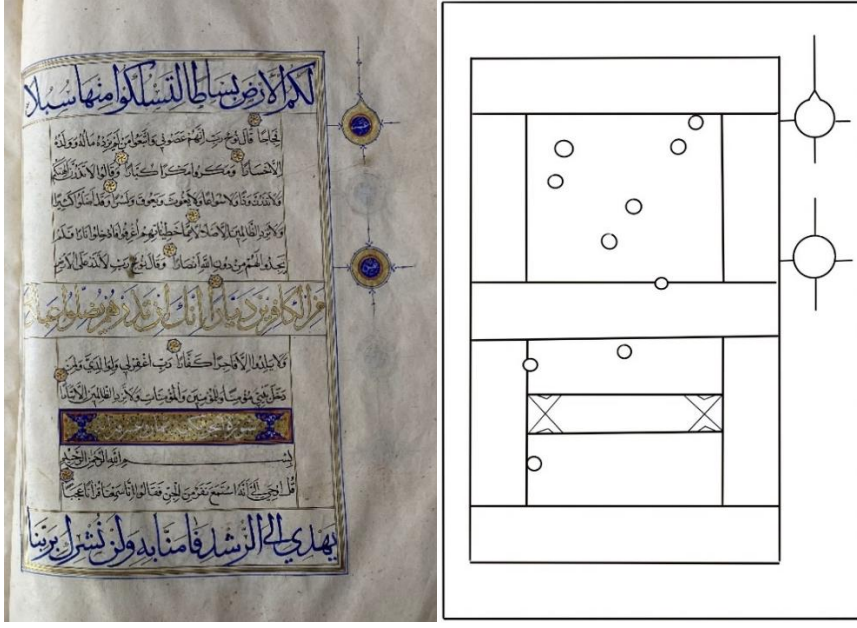 لكم الأرض بساطا لتسلكوا منها سبلا
فجاجا قال نوح رب إنهم عصوني واتبعوا من لم يزده ماله وولده
إلا خسارا ومكروا مكرا كبارا وقالوا لا تذرن آلهتكم
ولا تذرن ودا ولا سواعا ولا يغوث ويعوق ونسرا وقد أضلوا كثيرا
ولا تزد الظالمين إلا ضلالا مما خطيئاتهم أغرقوا فأدخلوا نارا فلم
يجدوا لهم من دون الله أنصارا وقال نوح رب لا تذر على الأرض
من الكافرين ديارا إنك إن تذرهم يضلوا عبادك
ولا يلدوا إلا فاجرا كفارا رب اغفر لي ولوالدي ولمن
دخل بيتي مؤمنا وللمؤمنين والمؤمنات ولا تزد الظالمين إلا تبارا
سورة الجن
بسم الله الرحمن الرحيم
قل أوحي إلي أنه استمع نفر من الجن فقالوا إنا سمعنا قرآنا عجبا
يهدي إلى الرشد فآمنا به ولن نشرك بربنا